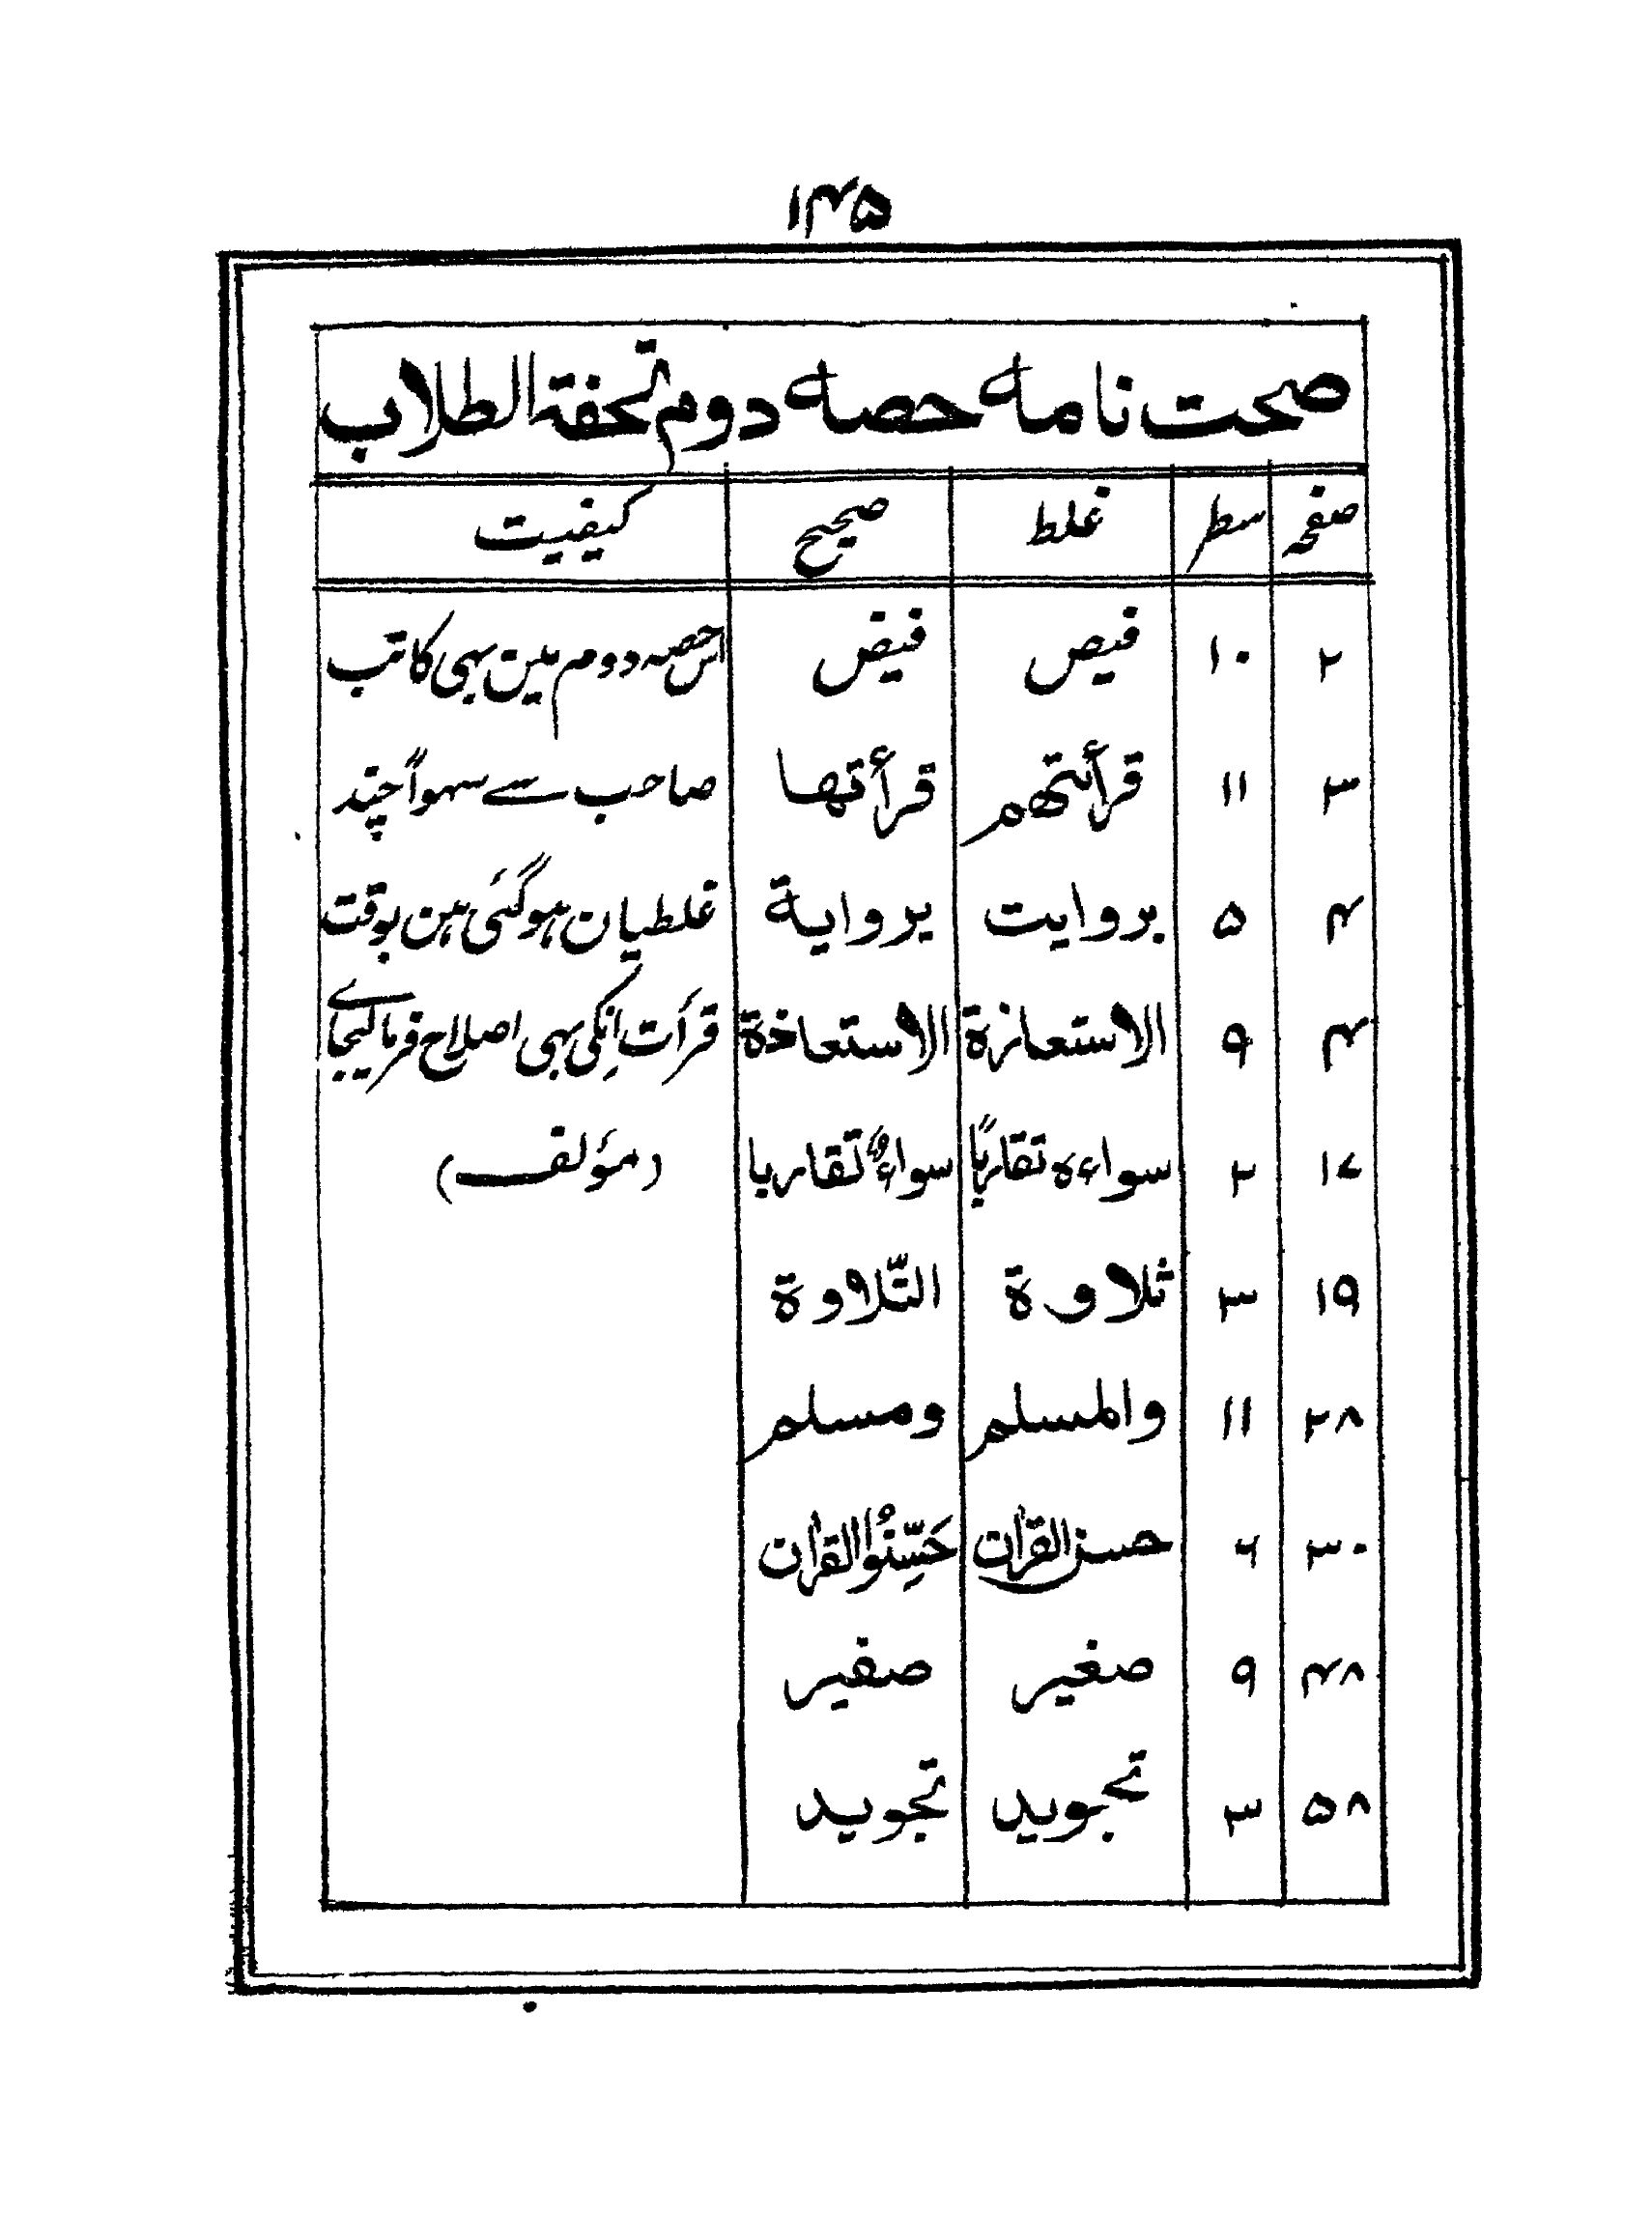 ۱۴۵
صحت نامہ حصہ دوم تحفۃ الطلاب
صفحہ سطر غلط صحیح کیفیت
۲ ۱۰ فیص فیض اس حصہ دوم مین بہی کاتب
۳ ۱۱ قرأتھم قرأتھا صاحب سے سہواً چند
۴ ۵ بروایت بروایۃ غلطیان ہوگئی ہین بوقت
۴ ۹ الاستعازۃ الاستعاذۃ قرأت انکی بہی اصلاح فرمالیجاے
۱۷ ۲ سواءہ تقارباً سواءٌ تقاربا (مؤلف)
۱۹ ۳ ثلاوۃ التّلاوۃ
۲۸ ۱۱ والمسلم ومسلم
۳۰ ۶ حسن القرآن حَسِّنُوا القرآن
۴۸ ۹ صغیر صفیر
۵۸ ۳ تجوید تجوید